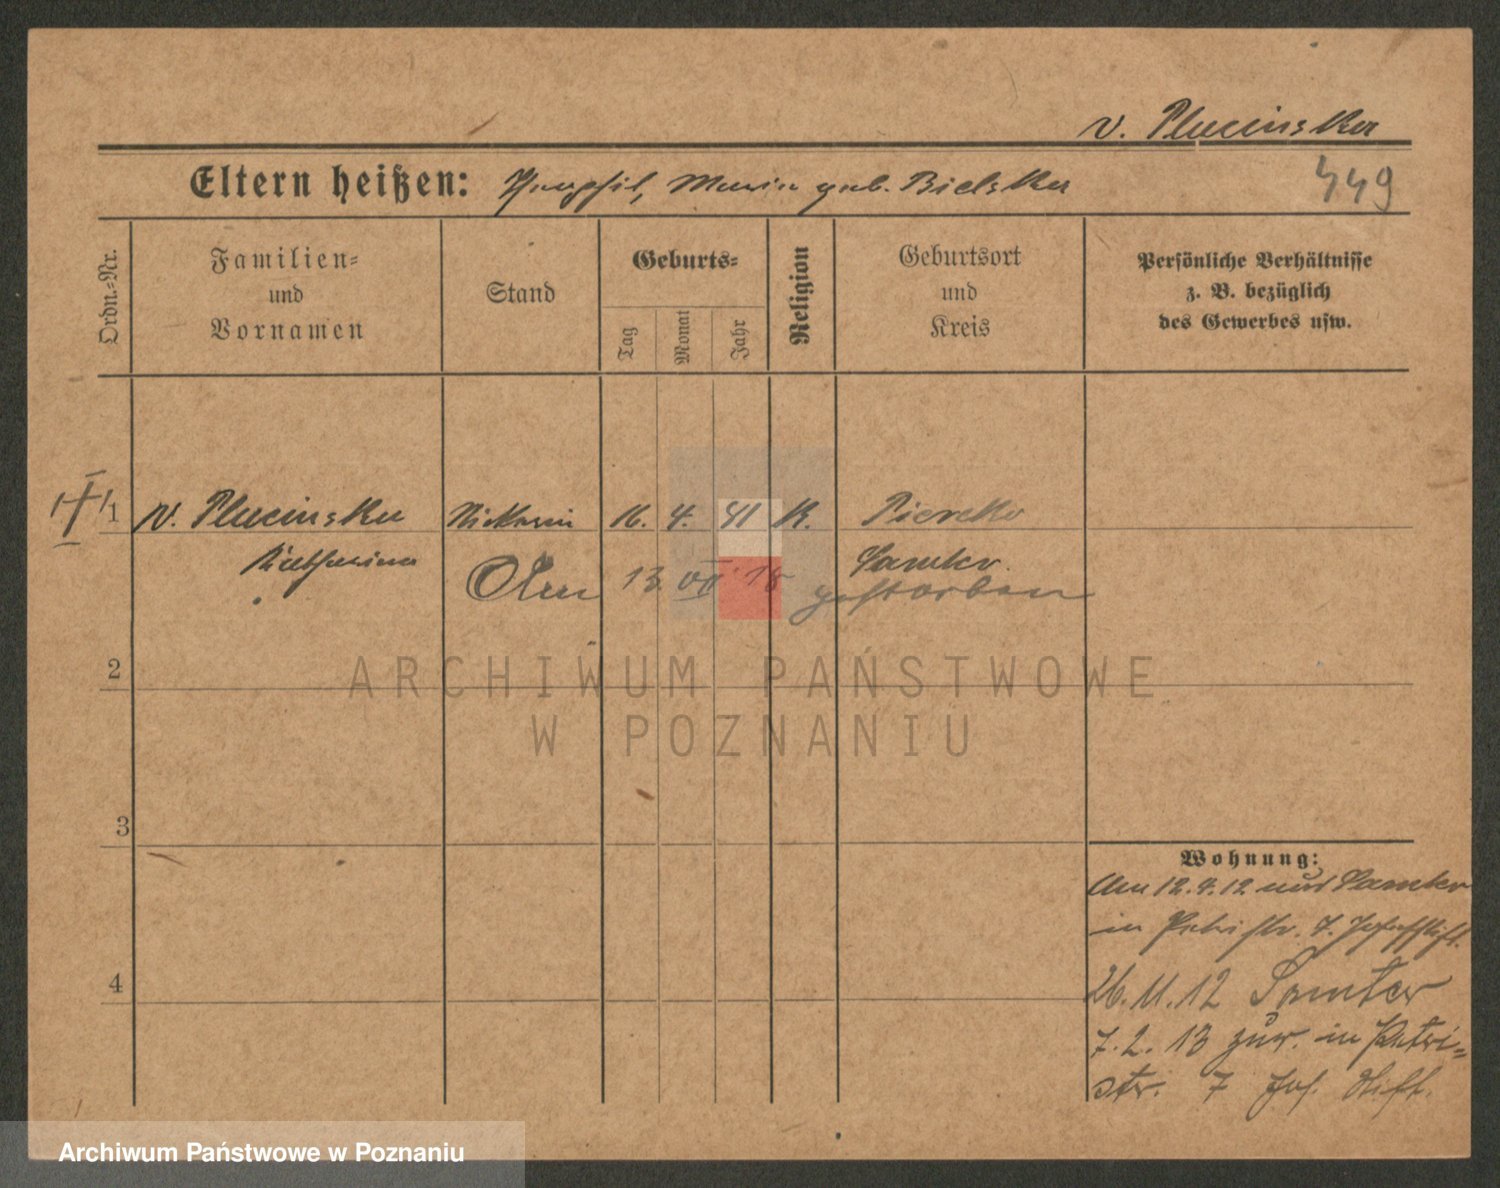 v. Plucinska
Eltern heißen: Pompfil, Maria geb. Bielska
449
Ordn.=Nr.
Familien=
und
Vornamen
Stand
Geburts=
Tag
Monat
Jahr
Religion
Geburtsort
und
Kreis
Persönliche Verhältnisse
z. B. bezüglich
des Gewerbes usw.
1 v. Plucinska 16. 4. 41 K. Piersko
Katharina Samter
Am 13 VII 18 gestorben
2
ARCHIWUM PAŃSTWOWE
W POZNANIU
3
Wohnung:
Am 12.4.12 aus Samter
in Petristr. 7. Josephstift.
4
26.11.12 Samter
7.2.13 zur. in Petri=
str. 7 Jos. Stift.
Archiwum Państwowe w Poznaniu